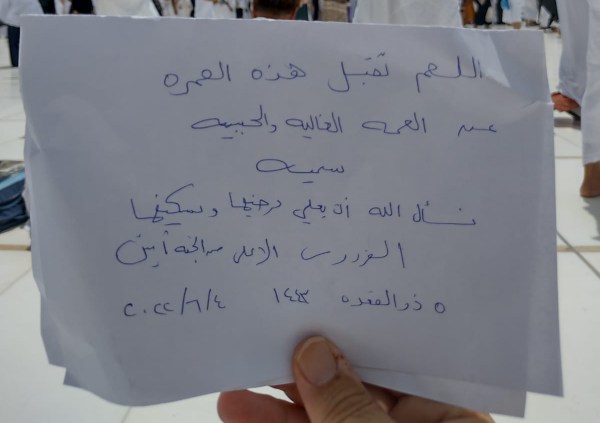 اللهم تقبل هذه العمره
عن العمه الغاليه والحبيبه
سميه
نسأل الله ان يعلي درجتها ويسكنها
الفردوس الاعلى من الجنة آمين
٥ ذو القعده ١٤٤٣ ٢٠٢٢/٦/٤